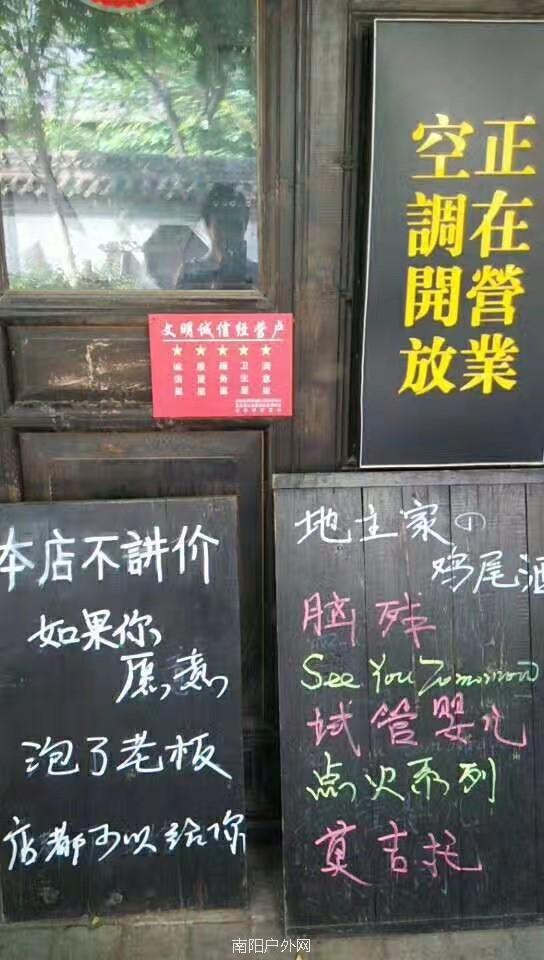 正在營業
空調開放
文明诚信经营户
本店不讲价
如果你
愿意
泡了老板
店都可以给你
地主家の
鸡尾酒
脑残
See You Tomorrow
试管婴儿
点火系列
莫吉托
南阳户外网